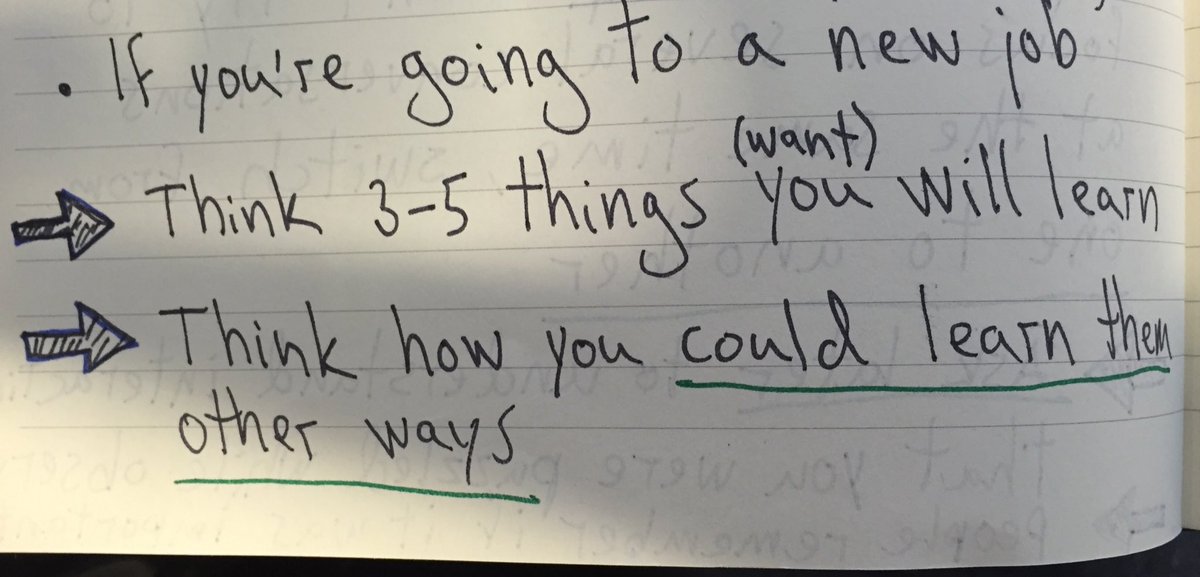 . If you're going to a new job
(want)
Think 3-5 things you will learn
Think how you could learn them
other ways